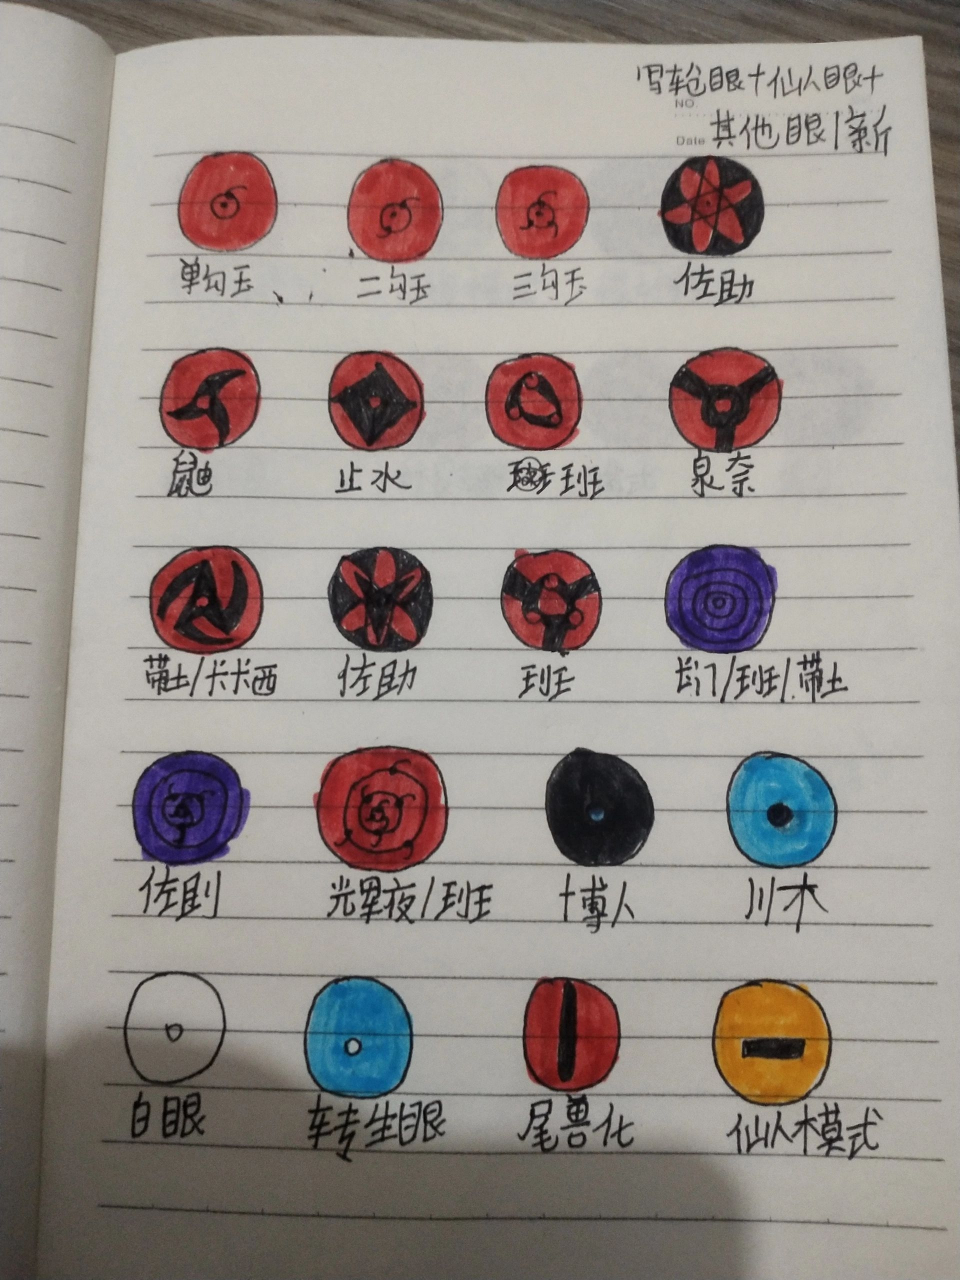 写轮眼+仙人眼+
NO.
Date 其他眼/新
单勾玉 二勾玉 三勾玉 佐助
鼬 止水 班 泉奈
带土/卡卡西 佐助 班 长门/班/带土
佐助 光军夜/班 博人 川木
白眼 转生眼 尾兽化 仙人模式